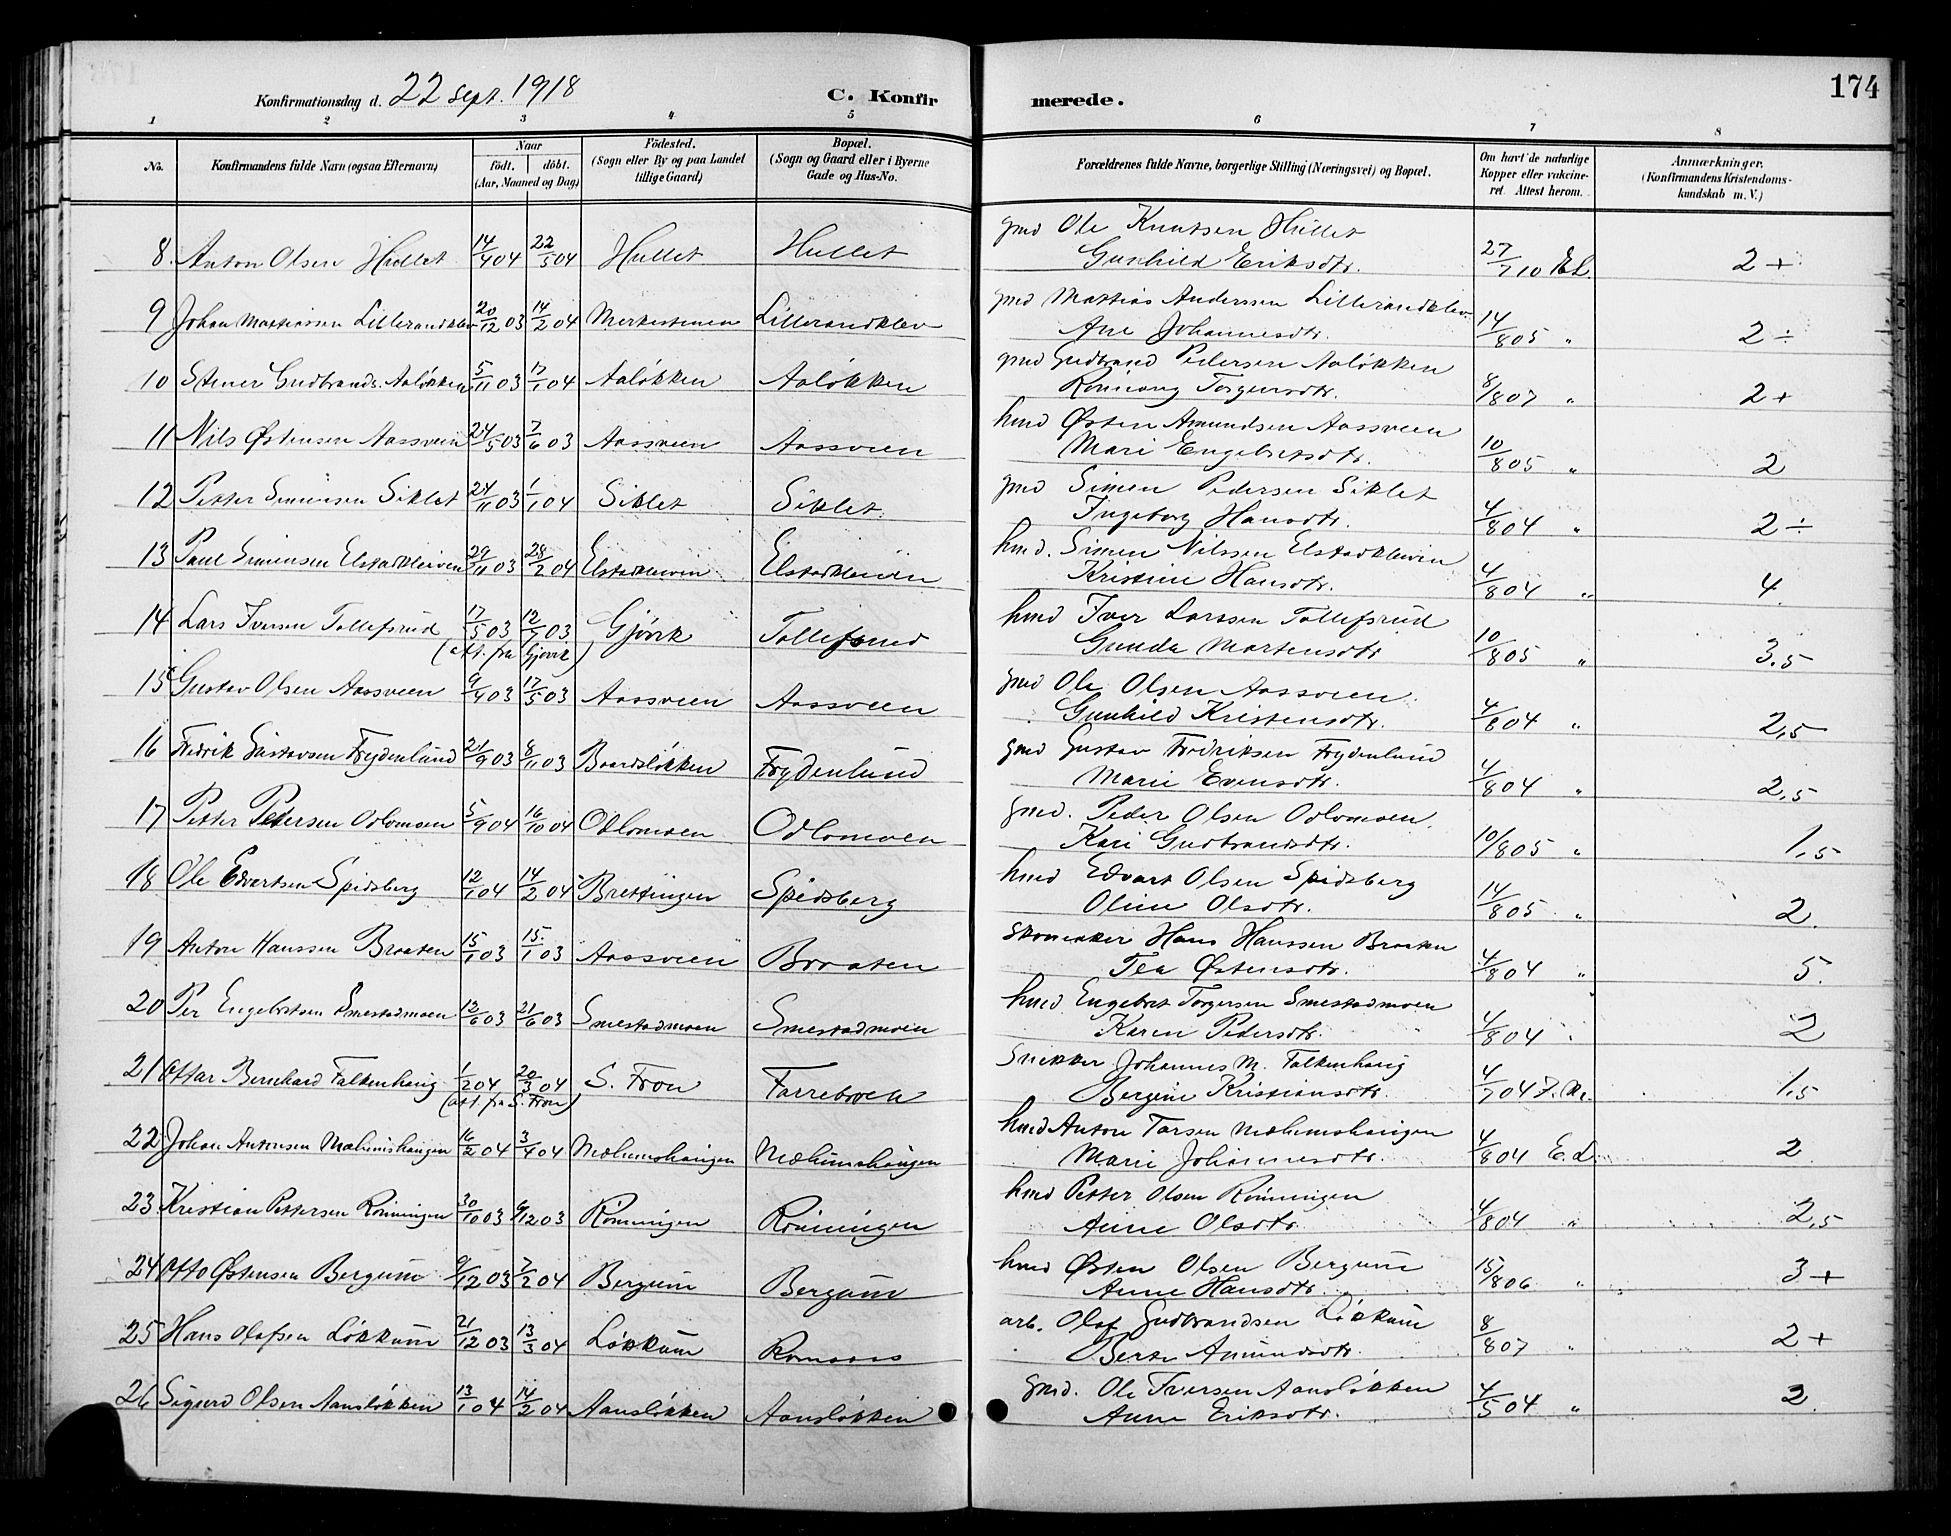 174
Konfirmationsdag d. 22 sept. 1918
C. Konfirmerede.
1 2 3 4 5 6 7 8
No. Konfirmandens fulde Navn (ogsaa Efternavn) Naar født. døbt. (Aar, Maaned og Dag) Fødested. (Sogn eller By og paa Landet tillige Gaard) Bopæl. (Sogn og Gaard eller i Byerne Gade og Hus-No. Forældrenes fulde Navne, borgerlige Stilling (Næringsvei) og Bopæl. Om havt de naturlige Kopper eller vakcineret. Attest herom. Anmærkninger. (Konfirmandens Kristendomskundskab m. V.)
8. Anton Olsen Hullet 14/4 04 22/5 04 Hullet Hullet gmd Ole Knutsen Hullet
Gunhild Eriksdtr. 27/7 10 E.L. 2+
9 Johan Mattiassen Lillerandklev 20/12 03 14/2 04 Merkestenen Lillerandklev gmd Mattias Anderssen Lillerandklev
Ane Johannesdtr. 14/8 05 " 2÷
10 Stener Gudbrands. Aaløkken 5/11 03 17/1 04 Aaløkken Aaløkken gmd Gudbrand Pedersen Aaløkken
Rønnaug Torgersdtr. 8/8 07 " 2+
11 Nils Østensen Aassveen 24/5 03 7/6 03 Aassveen Aassveen hmd Østen Amundsen Aassveen
Mari Engebretsdtr. 10/8 05 " 2
12 Petter Simensen Siklet 24/11 03 1/1 04 Siklet Siklet gmd Simen Pedersen Siklet
Ingeborg Hansdtr. 4/8 04 " 2÷
13 Paul Simensen Elstadkleiven 29/11 03 28/2 04 Elstadkleiven Elstadkleiven hmd. Simen Nilssen Elstadkleiven
Kristine Hansdtr. 4/8 04 " 4.
14 Lars Iversen Tollefsrud 17/5 03 12/7 03 Gjøvik Tollefsrud hmd Iver Larssen Tollefsrud
(att. fra Gjøvik) Gunda Martensdtr 10/8 05 " 3.5
15 Gustav Olsen Aassveen 9/4 03 17/5 03 Aassveen Aassveen gmd Ole Olsen Aassveen
Gunhild Kristensdtr. 4/8 04 " 2,5
16 Fredrik Gustavsen Frydenlund 21/9 03 8/11 03 Baardsløkken Frydenlund gmd Gustav Fredriksen Frydenlund
Marie Evensdtr. 4/8 04 " 2,5
17 Petter Petersen Odlomoen 5/9 04 16/10 04 Odlomoen Odlomoen gmd. Peder Olsen Odlomoen
Kari Gudbrandsdtr. 10/8 05 " 1,5
18 Ole Edvartsen Spidsberg 12/1 04 14/2 04 Brettingen Spidsberg hmd Edvart Olsen Spidsberg
Oline Olsdtr. 14/8 05 " 2.
19 Anton Hanssen Braaten 15/1 03 15/1 03 Aassveen Braaten Skomaker Hans Hanssen Braaten
Tea Østensdtr. 4/8 04 " 5.
20 Per Engebretsen Smestadmoen 12/6 03 21/6 03 Smestadmoen Smestadmoen hmd Engebret Torgersen Smestadmoen
Karen Pedersdtr. 4/8 04 " 2
21 Ottar Bernhard Falkenhaug 1/2 04 20/3 04 S. Fron Farreboen Snekker Johannes M. Falkenhaug
(att. fra S. Fron) Bergine Kristiansdtr. 4/7 04 1,5
22 Johan Antonsen Mæhumshaugen 16/2 04 3/4 04 Mæhumshaugen Mæhumshaugen hmd Anton Larsen Mæhumshaugen
Marie Johannesdtr. 4/8 04 E.L. 2
23 Kristian Pettersen Rønningen 30/10 03 6/12 03 Rønningen Rønningen hmd Petter Olsen Rønningen
Anne Olsdtr. 4/8 04 " 2,5
24 Otto Østensen Bergum 9/12 03 7/2 04 Bergum Bergum hmd Østen Olsen Bergum
Anne Hansdtr. 15/8 06 " 3+
25 Hans Olafsen Løkkum 21/12 03 13/3 04 Løkkum Romsaas arb. Olaf Gudbrandsen Løkkum
Berte Amundsdtr. 8/8 07 " 2+
26 Sigurd Olsen Aansløkken 13/1 04 14/2 04 Aansløkken Aansløkken gmd. Ole Iversen Aansløkken
Anne Eriksdtr. 4/5 04 " 2.